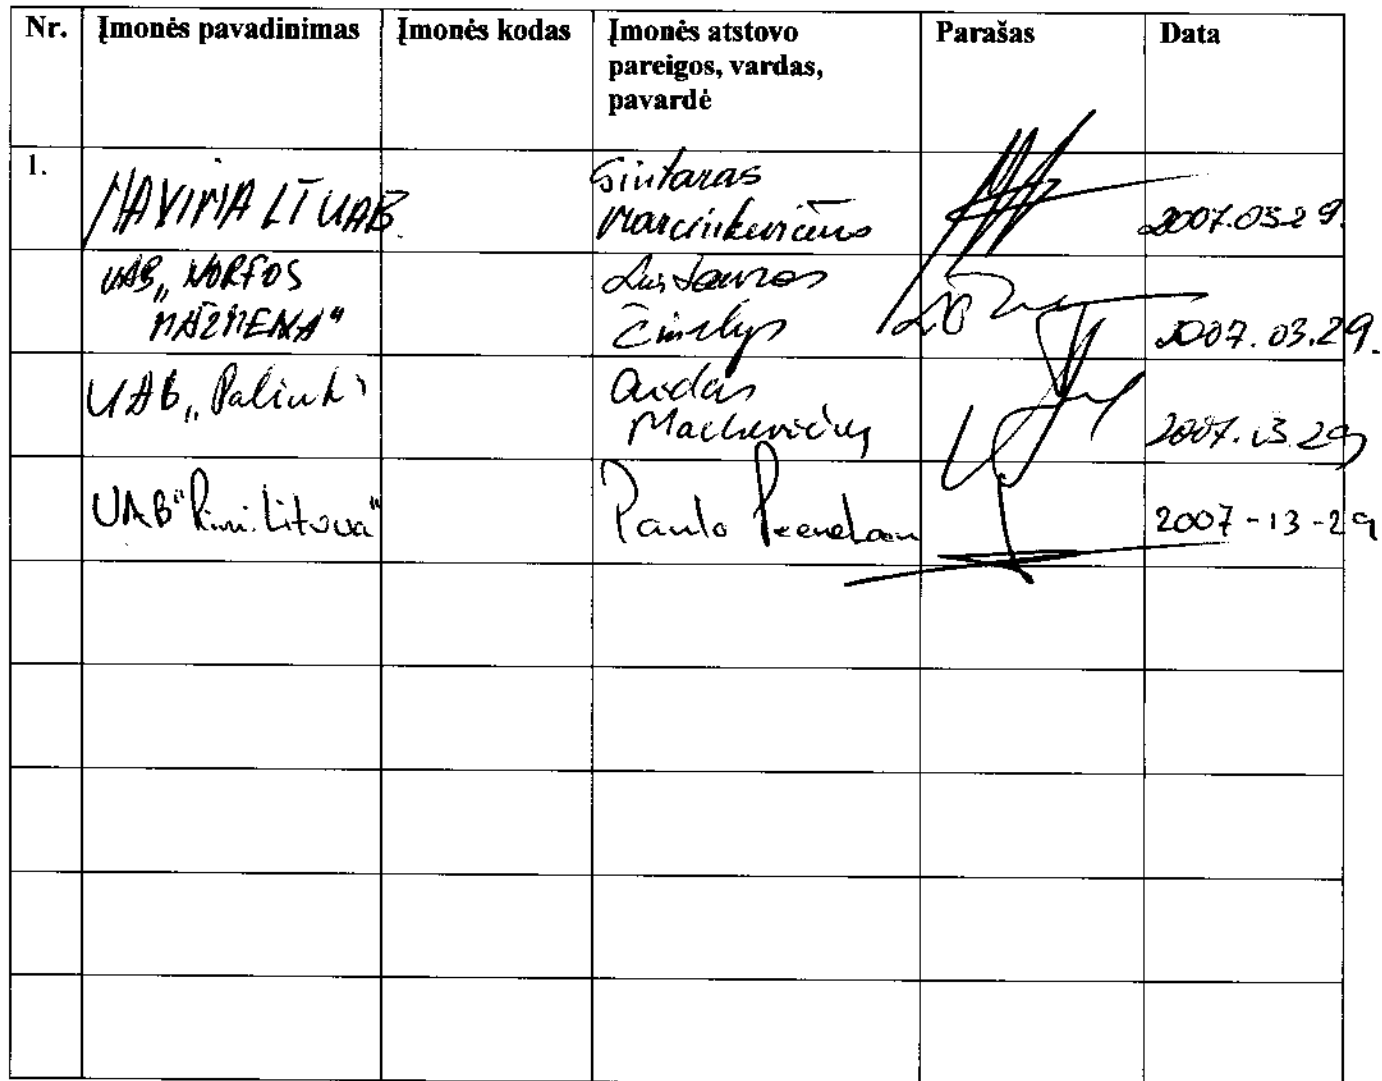 Nr. Įmonės pavadinimas Įmonės kodas Įmonės atstovo pareigos, vardas, pavardė Parašas Data
1. MAXIMA LT UAB Gintaras Marcinkevičius 2007.03.29.
UAB „NORFOS MAŽMENA“ Dainius 2007.03.29.
UAB „Palink“ Aidas Mackevičius 2007.03.29
UAB "Rimi Lietuva" 2007-13-29